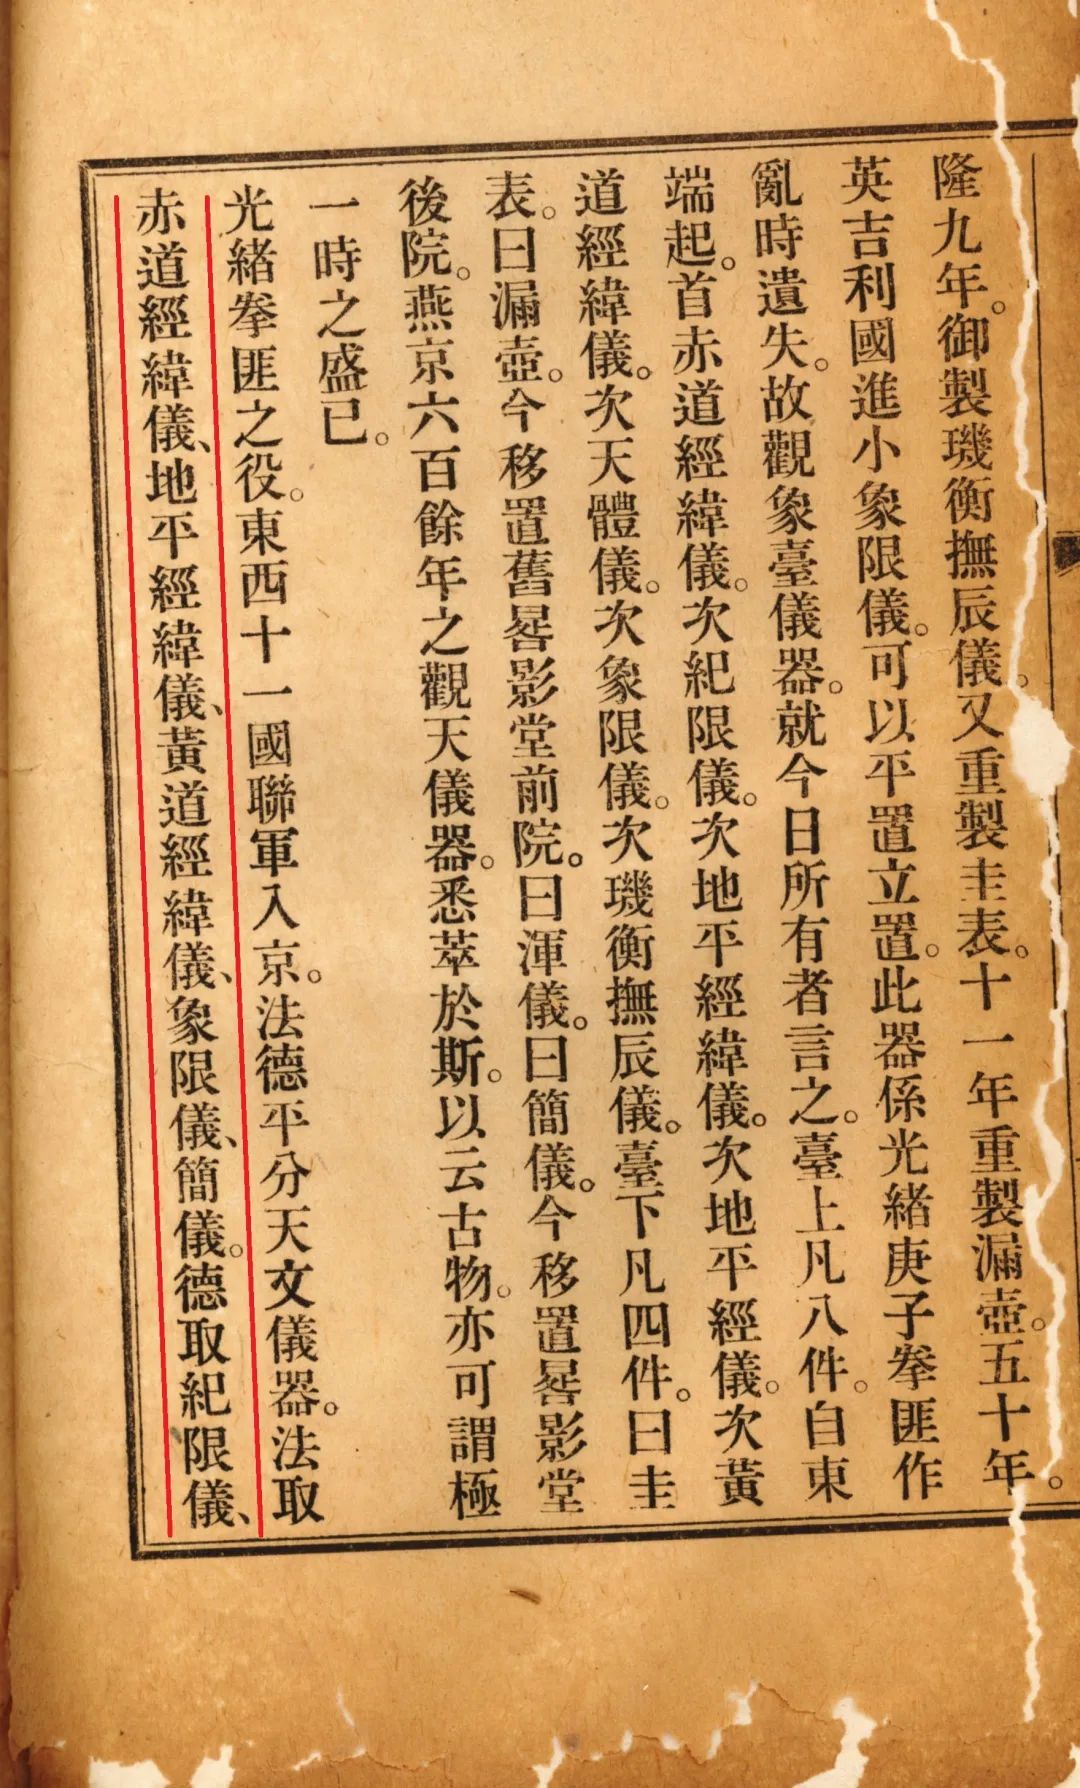 隆九年。御製璣衡撫辰儀。又重製圭表。十一年重製漏壺。五十年。
英吉利國進小象限儀。可以平置立置。此器係光緒庚子拳匪作
亂時遺失。故觀象臺儀器。就今日所有者言之。臺上凡八件。自東
端起。首赤道經緯儀。次紀限儀。次地平經緯儀。次地平經儀。次黃
道經緯儀。次天體儀。次象限儀。次璣衡撫辰儀。臺下凡四件。曰圭
表。曰漏壺。今移置舊晷影堂前院。曰渾儀。曰簡儀。今移置晷影堂
後院。燕京六百餘年之觀天儀器。悉萃於斯。以云古物。亦可謂極
一時之盛已。
光緒拳匪之役。東西十一國聯軍入京。法德平分天文儀器。法取
赤道經緯儀、地平經緯儀、黃道經緯儀、象限儀、簡儀。德取紀限儀、